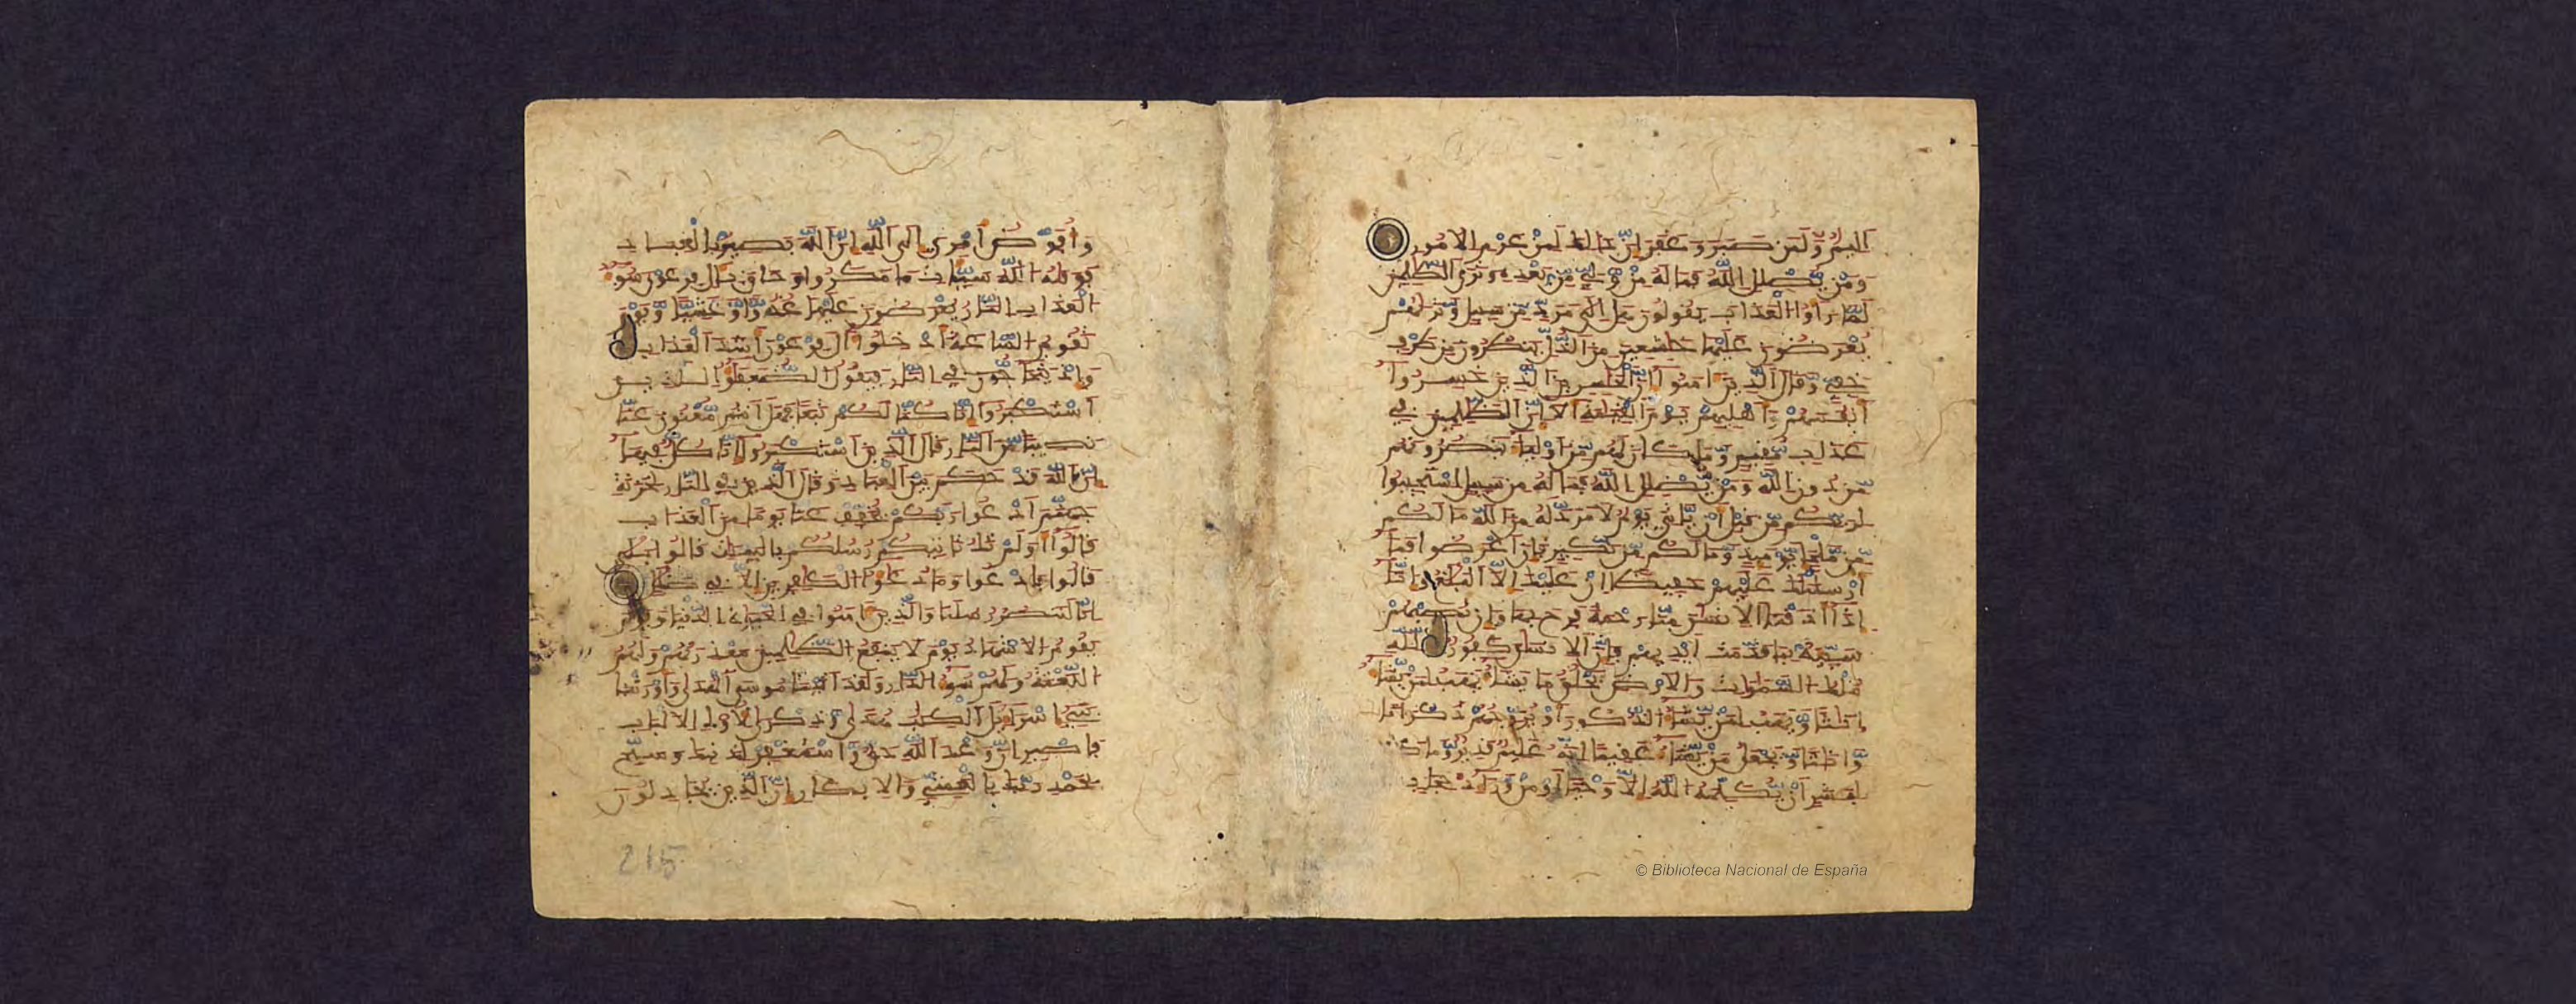 اليم ولمن صبر وغفر ان ذلك لمن عزم الامور
ومن يضلل الله فما له من ولي من بعده وترى الظلمين
لما راوا العذاب يقولون هل الى مرد من سبيل وتريهم
يعرضون عليها خشعين من الذل ينظرون من طرف
خفي وقال الذين امنوا ان الخسرين الذين خسروا
انفسهم واهليهم يوم القيمة الا ان الظلمين في
عذاب مقيم وما كان لهم من اولياء ينصرونهم
من دون الله ومن يضلل الله فما له من سبيل استجيبوا
لربكم من قبل ان ياتي يوم لا مرد له من الله ما لكم
من ملجا يومئذ وما لكم من نكير فان اعرضوا فما
ارسلنك عليهم حفيظا ان عليك الا البلغ وانا
اذا اذقنا الانسن منا رحمة فرح بها وان تصبهم
سيئة بما قدمت ايديهم فان الانسن كفور لله
ملك السموات والارض يخلق ما يشاء يهب لمن يشاء
اناثا ويهب لمن يشاء الذكور او يزوجهم ذكرانا
واناثا ويجعل من يشاء عقيما انه عليم قدير وما كان
لبشر ان يكلمه الله الا وحيا او من وراء حجاب
وافوض امري الى الله ان الله بصير بالعباد
فوقيه الله سيئات ما مكروا وحاق بال فرعون سوء
العذاب النار يعرضون عليها غدوا وعشيا ويوم
تقوم الساعة ادخلوا ال فرعون اشد العذاب
واذ يتحاجون في النار فيقول الضعفؤا للذين
استكبروا انا كنا لكم تبعا فهل انتم مغنون عنا
نصيبا من النار قال الذين استكبروا انا كل فيها
ان الله قد حكم بين العباد وقال الذين في النار لخزنة
جهنم ادعوا ربكم يخفف عنا يوما من العذاب
قالوا اولم تك تاتيكم رسلكم بالبينات قالوا بلى
قالوا فادعوا وما دعوا الكفرين الا في ضلل
انا لننصر رسلنا والذين امنوا في الحيوة الدنيا ويوم
يقوم الاشهاد يوم لا ينفع الظلمين معذرتهم ولهم
اللعنة ولهم سوء الدار ولقد اتينا موسى الهدى واورثنا
بني اسراءيل الكتب هدى وذكرى لاولي الالباب
فاصبر ان وعد الله حق واستغفر لذنبك وسبح
بحمد ربك بالعشي والابكار ان الذين يجادلون
215
© Biblioteca Nacional de España